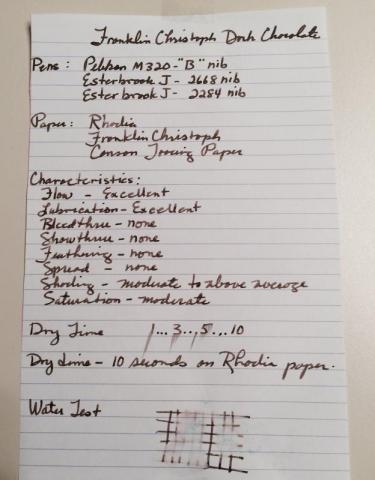 Franklin Christoph Dark Chocolate
Pens: Pelikan M320-"B" nib
Esterbrook J - 2668 nib
Esterbrook J - 2284 nib
Paper: Rhodia
Franklin Christoph
Canson Tracing Paper
Characteristics:
Flow - Excellent
Lubrication - Excellent
Bleedthru - none
Showthru - none
Feathering - none
Spread - none
Shading - moderate to above average
Saturation - moderate
Dry Time 1...3...5...10
Dry time - 10 seconds on Rhodia paper.
Water Test